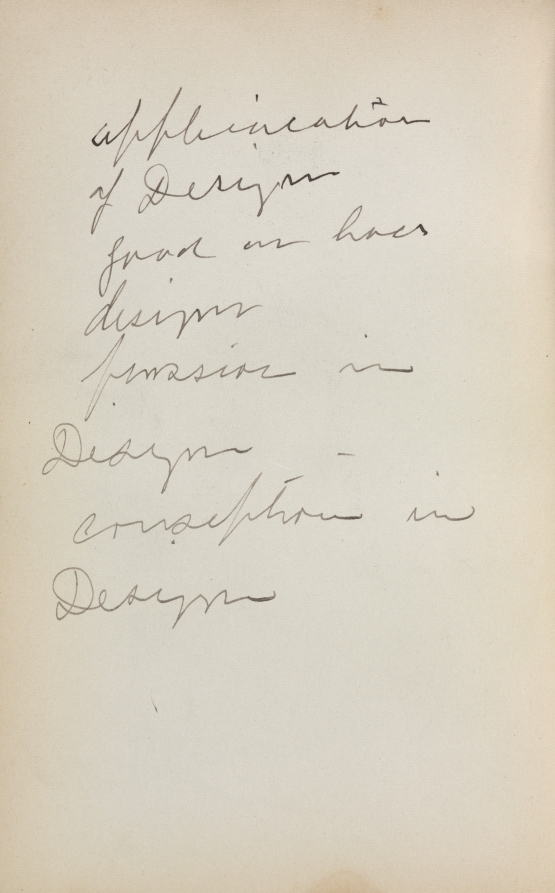 application
of Design
good or bad
design
passion in
Design -
conseption in
Design